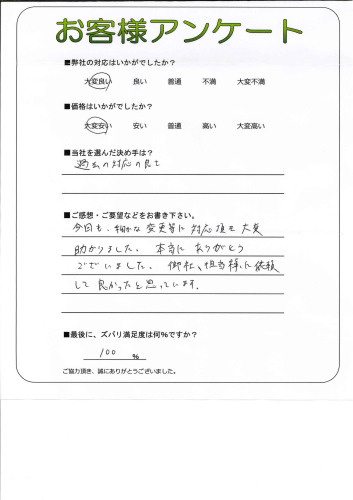 お客様アンケート
■弊社の対応はいかがでしたか？
大変良い 良い 普通 不満 大変不満
■価格はいかがでしたか？
大変安い 安い 普通 高い 大変高い
■当社を選んだ決め手は？
過去の対応の良さ
■ご感想・ご要望などをお書き下さい。
今回も、細かな変更等に対応頂き大変
助かりました。 本当に ありがとう
ございました。 御社、担当様に依頼
して良かったと思っています。
■最後に、ズバリ満足度は何％ですか？
100 ％
ご協力頂き、誠にありがとうございました。